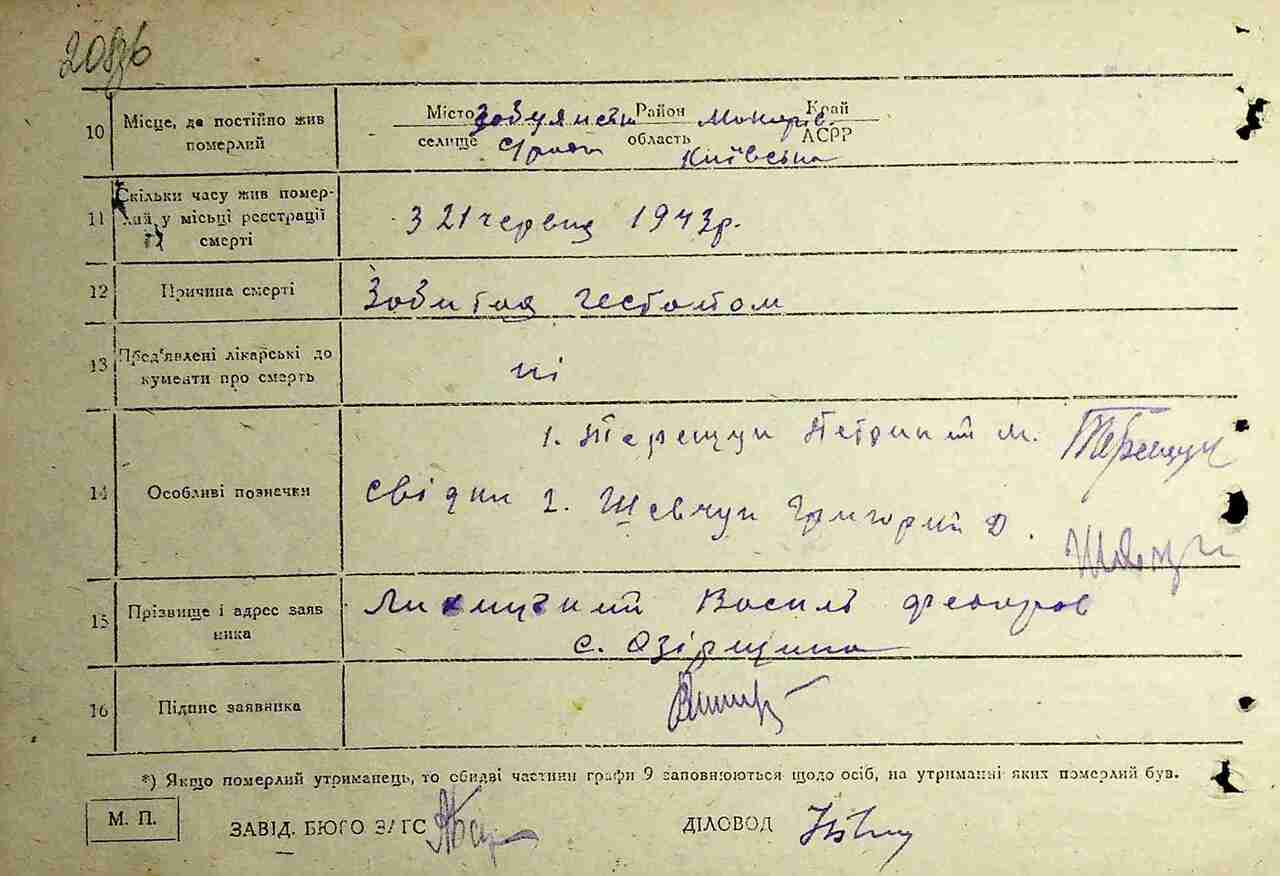 10 Місце, де постійно жив померлий
Місто Забуянськ Район Макарів. Край
селище область Київська АСРР
11 Скільки часу жив помер-
лий у місці реєстрації
смерті
З 21 червня 1943р.
12 Причина смерті
Забитая гестапом
13 Пред'явлені лікарські до
кументи про смерть
ні
14 Особливі позначки
1. Терещук м. Терещук
свідки 2. Шевчук Григорий Д.
15 Прізвище і адрес заяв
ника
Василь Федоров
с. Озірщина
16 Підпис заявника
*) Якщо померлий утриманець, то обидві частини графи 9 заповнюються щодо осіб, на утриманні яких померлий був.
М. П.
ЗАВІД. БЮРО ЗАГС ДІЛОВОД